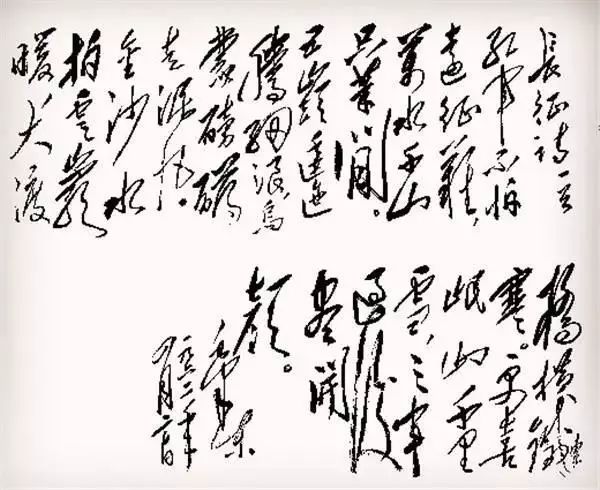 長征诗一首
红軍不怕
遠征難，
萬水千山
只等閒。
五嶺逶迤
騰細浪，烏
蒙磅礴
走泥丸。
金沙水
拍雲崖
暖，大渡
橋横鐵索
寒。更喜
岷山千里
雪，三軍
過後
盡開
顔。
毛泽東